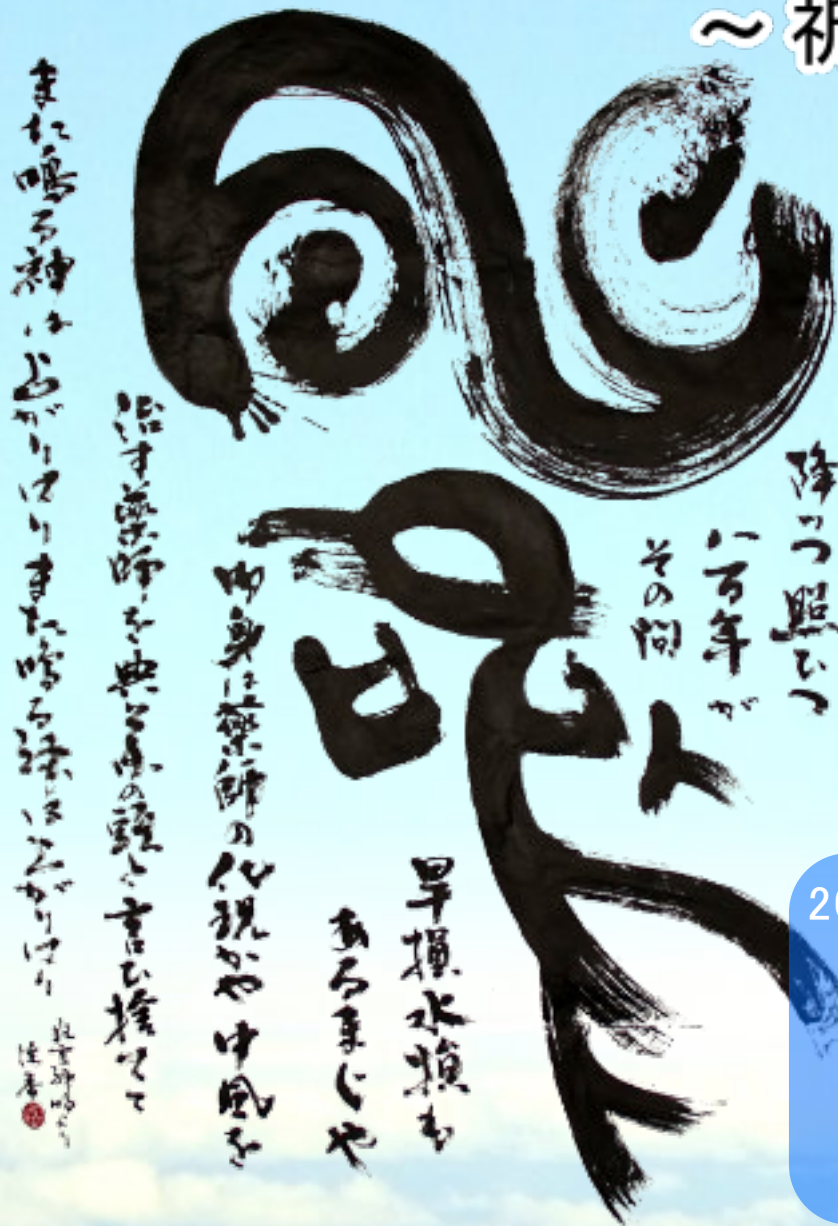 ～祈
降つつ照ひつ
八百年が
その間
旱損水損も
あるまじや
御身は薬師の化現かや中風を
治す薬師を典薬の頭と言ひ捨てて
また鳴る神は上がりけりまた鳴る神は上がりけり
狂言神鳴より